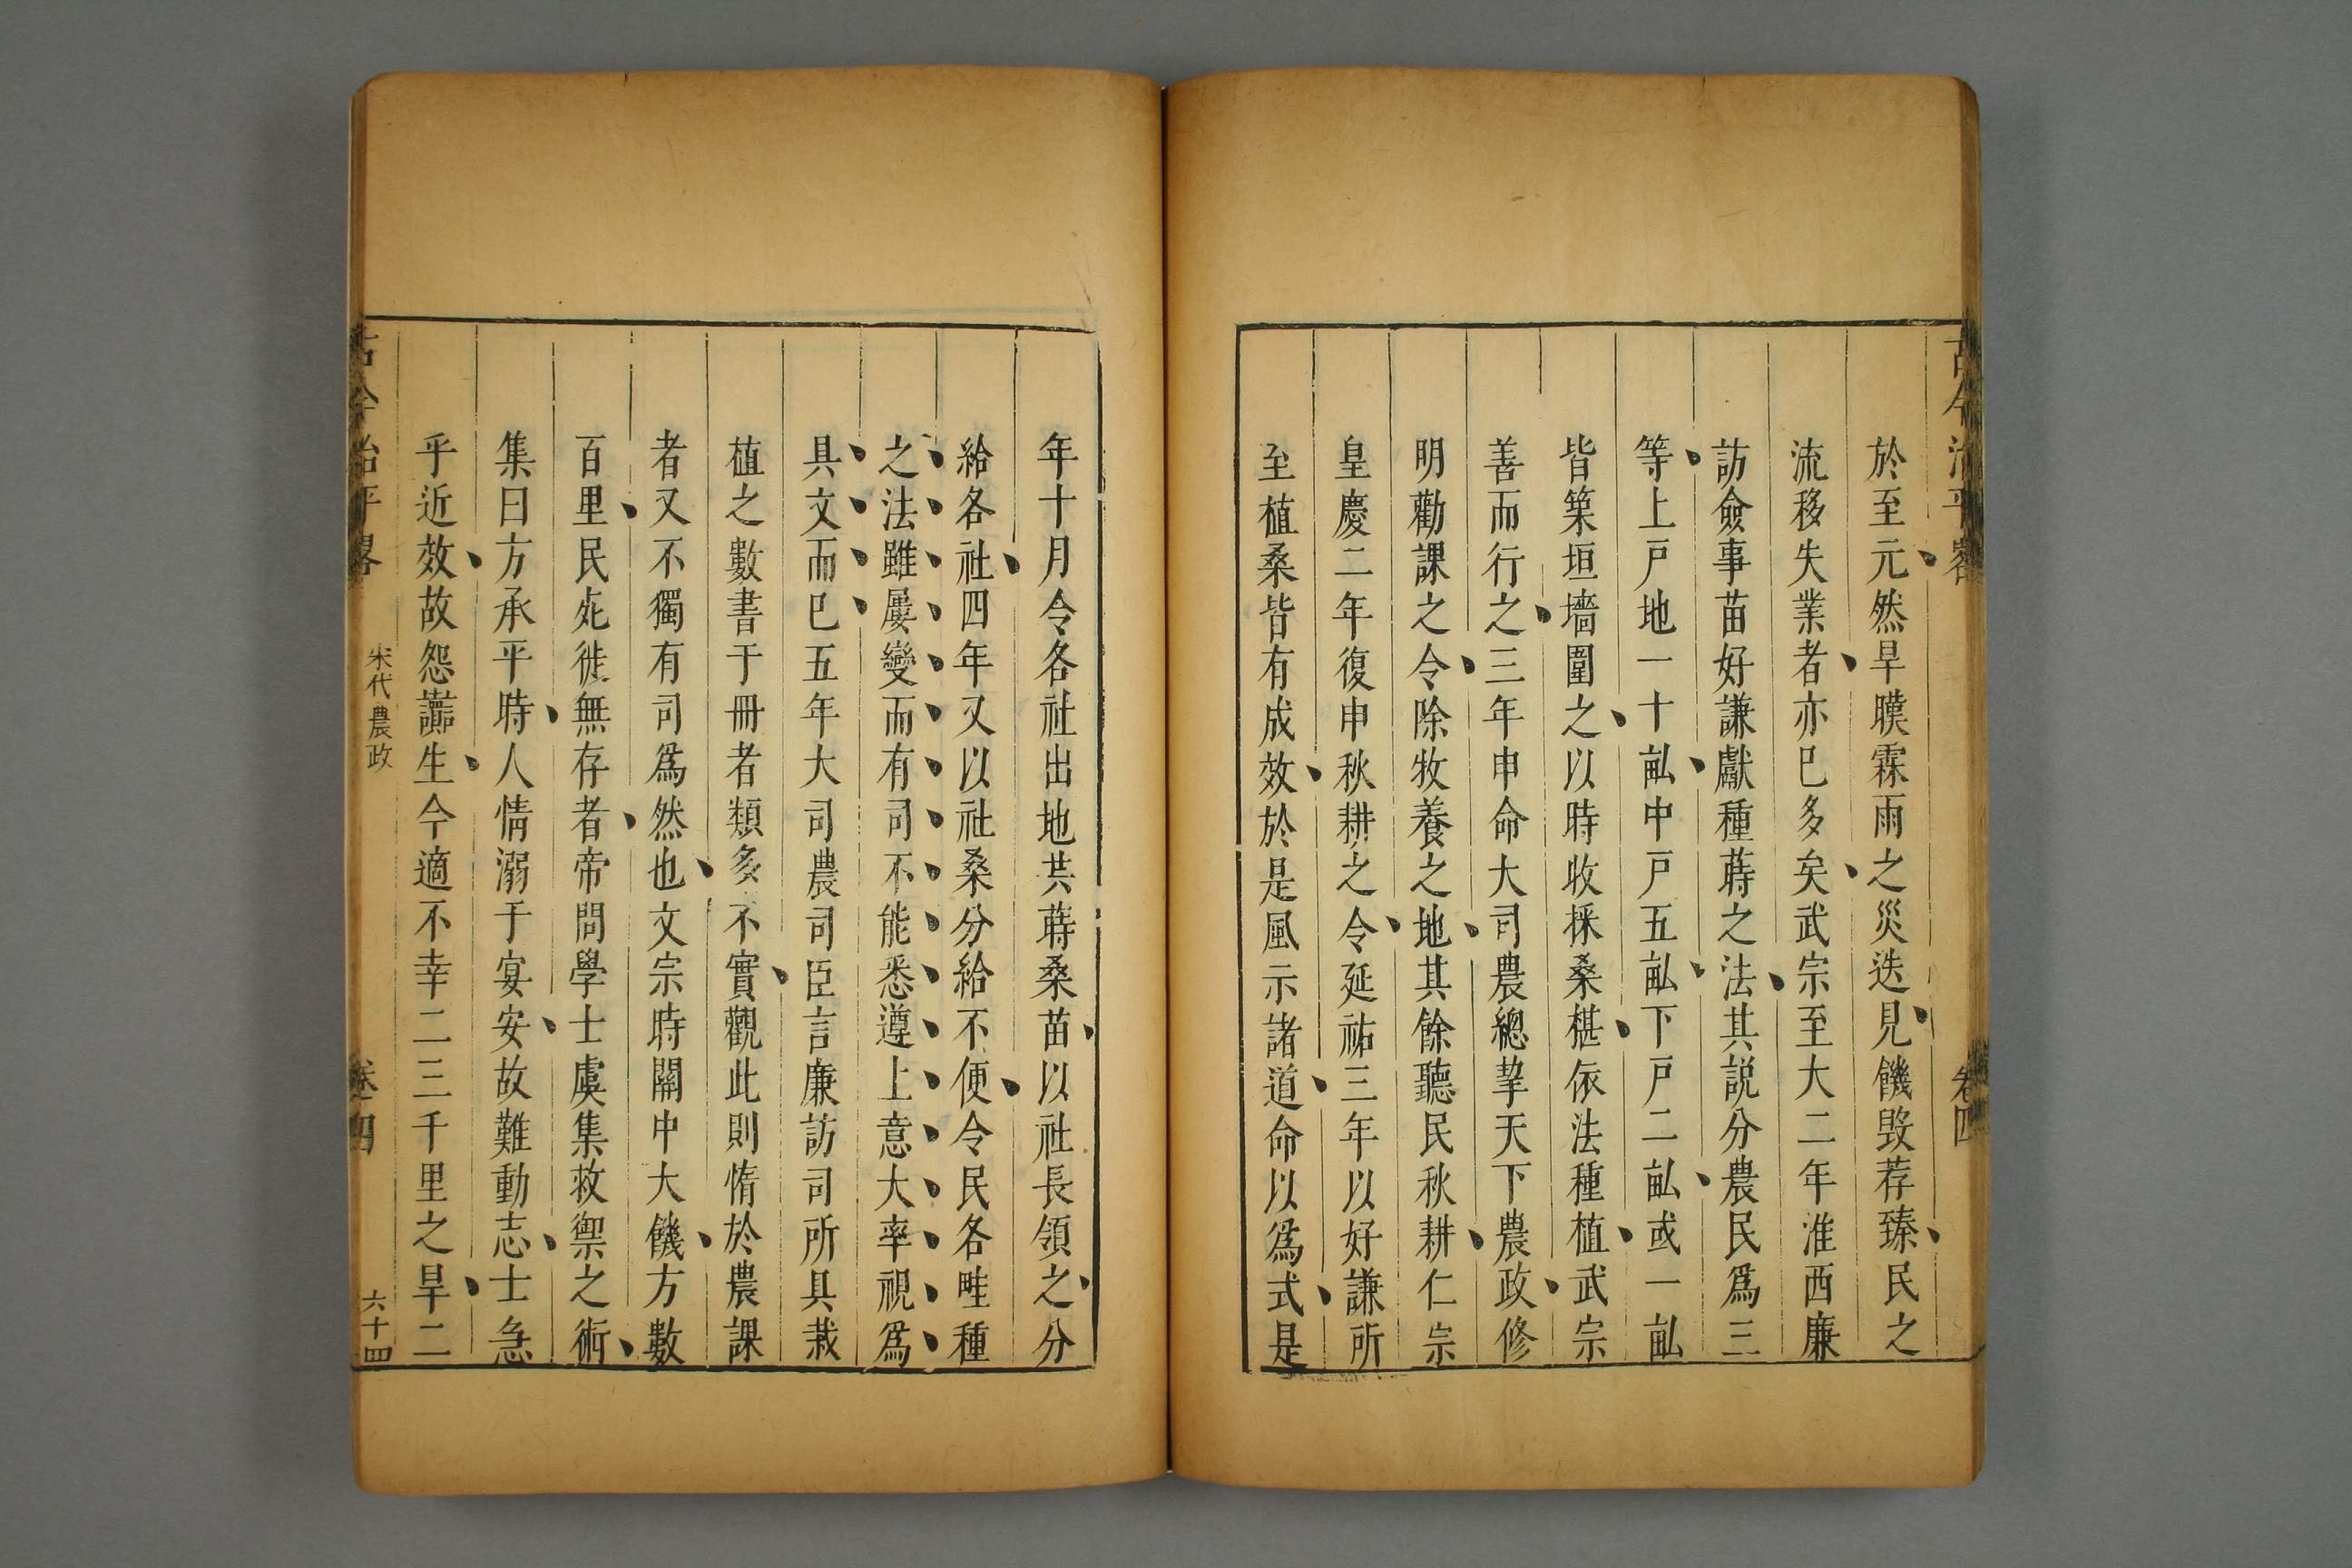 古今治平畧
卷四
於至元然旱暵霖雨之災迭見饑毀荐臻民之
流移失業者亦已多矣武宗至大二年淮西廉
訪僉事苗好謙獻種蒔之法其説分農民爲三
等上戸地一十畆中戸五畆下戸二畆或一畆
皆築垣墻圍之以時收採桑椹依法種植武宗
善而行之三年申命大司農總挈天下農政修
明勸課之令除牧養之地其餘聽民秋耕仁宗
皇慶二年復申秋耕之令延祐三年以好謙所
至植桑皆有成效於是風示諸道命以爲式是
年十月令各社出地共蒔桑苗以社長領之分
給各社四年又以社桑分給不便令民各畦種
之法雖屡變而有司不能悉遵上意大率視爲
具文而已五年大司農司臣言廉訪司所具栽
植之數書于冊者類多不實觀此則惰於農課
者又不獨有司爲然也文宗時關中大饑方數
百里民死徙無存者帝問學士虞集救禦之術
集曰方承平時人情溺于宴安故難動志士急
乎近效故怨讟生今適不幸二三千里之旱二
古今治平畧
宋代農政
卷四
六十四